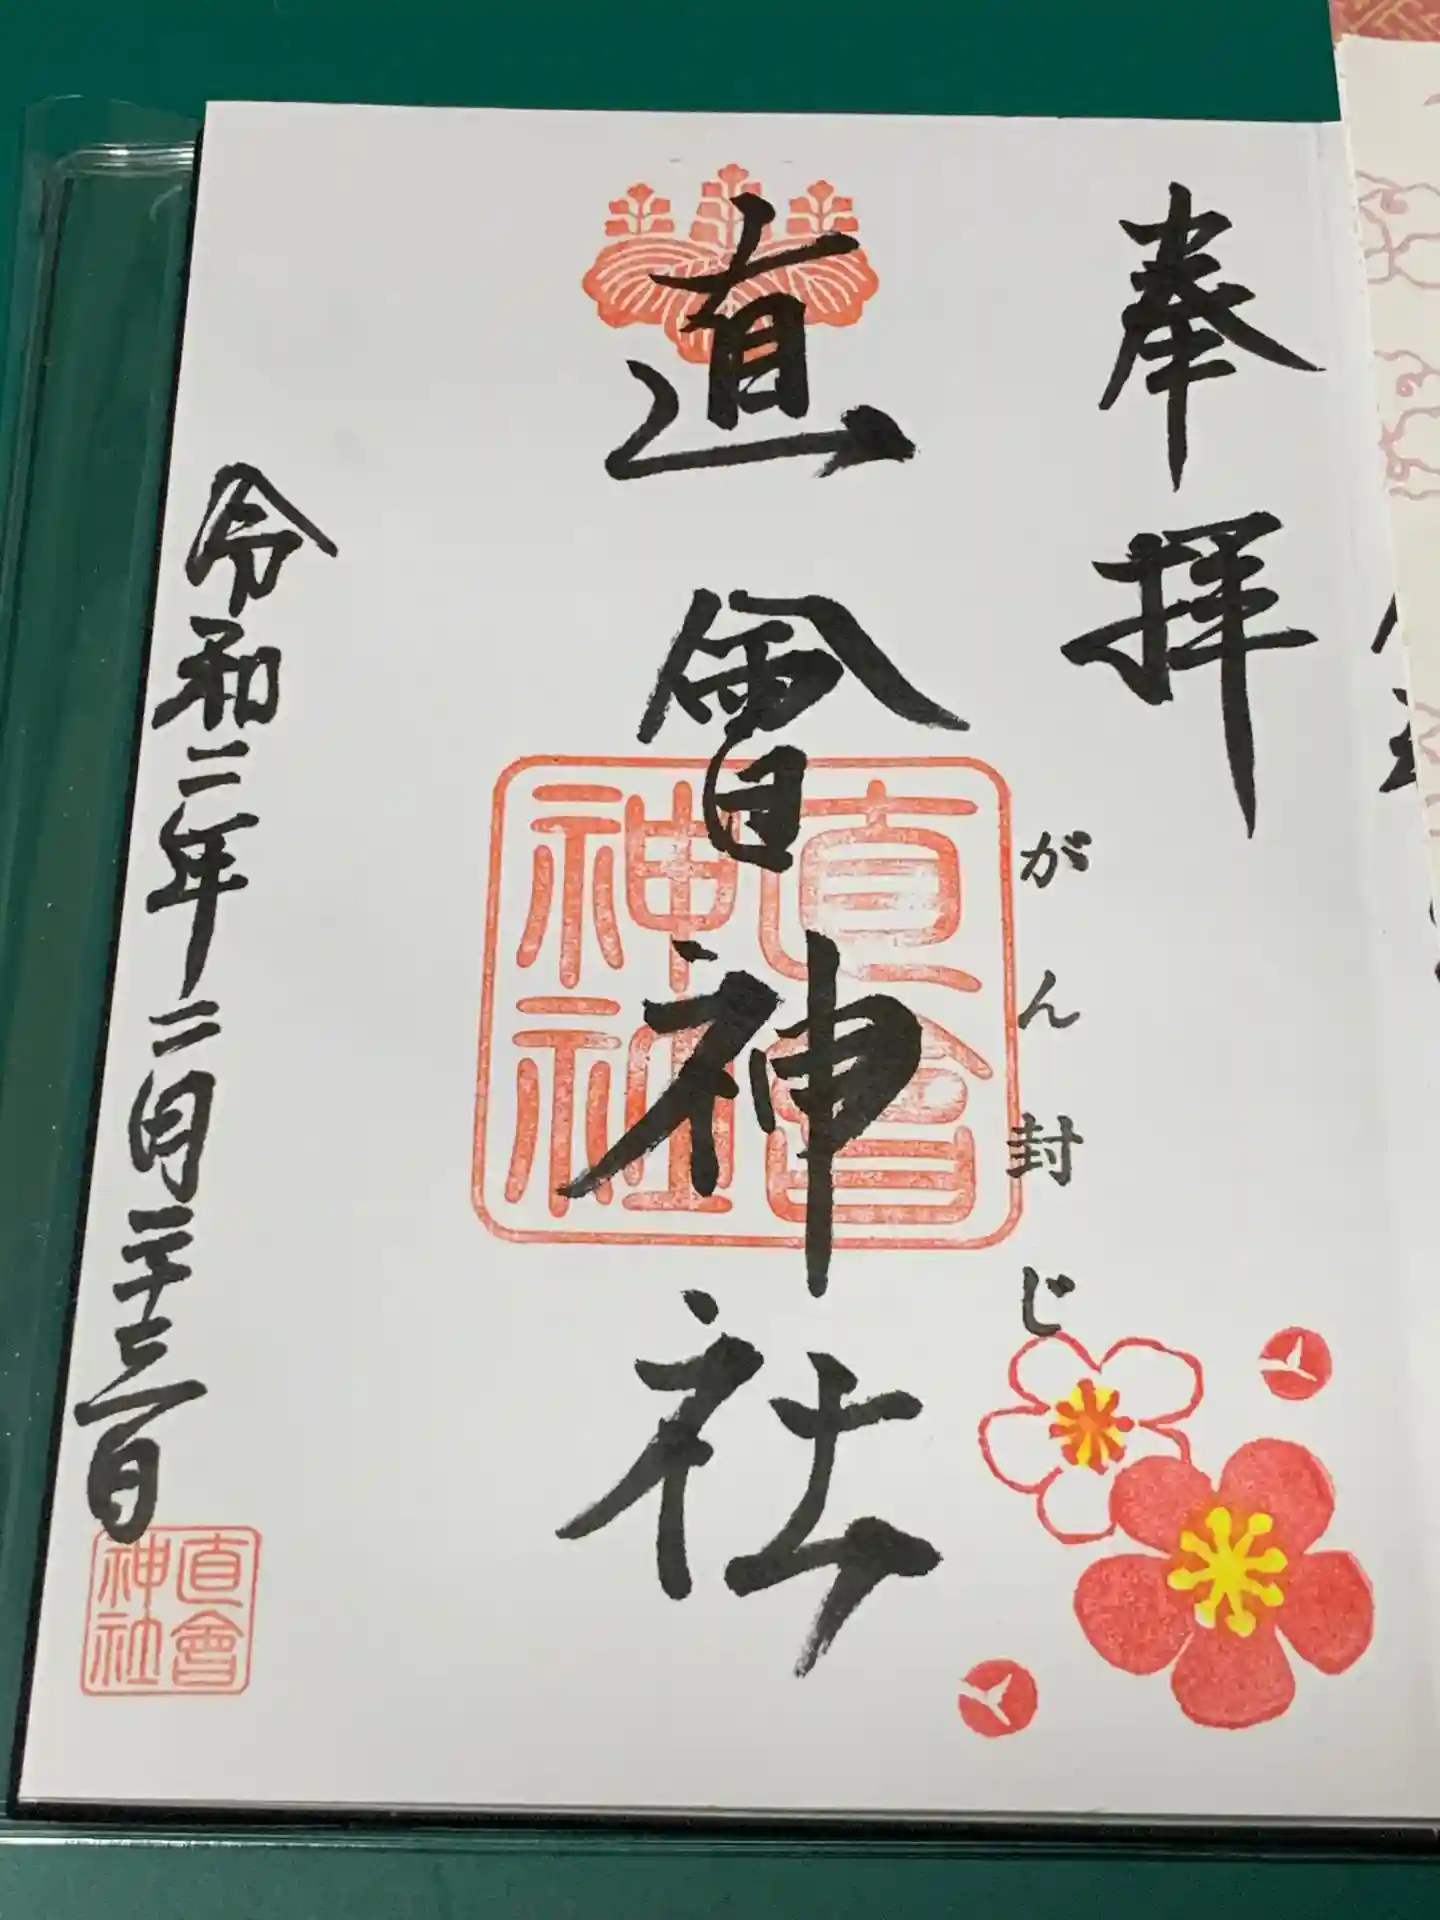 奉拝
がん封じ
直會神社
直會神社
令和二年二月二十二日
直會神社